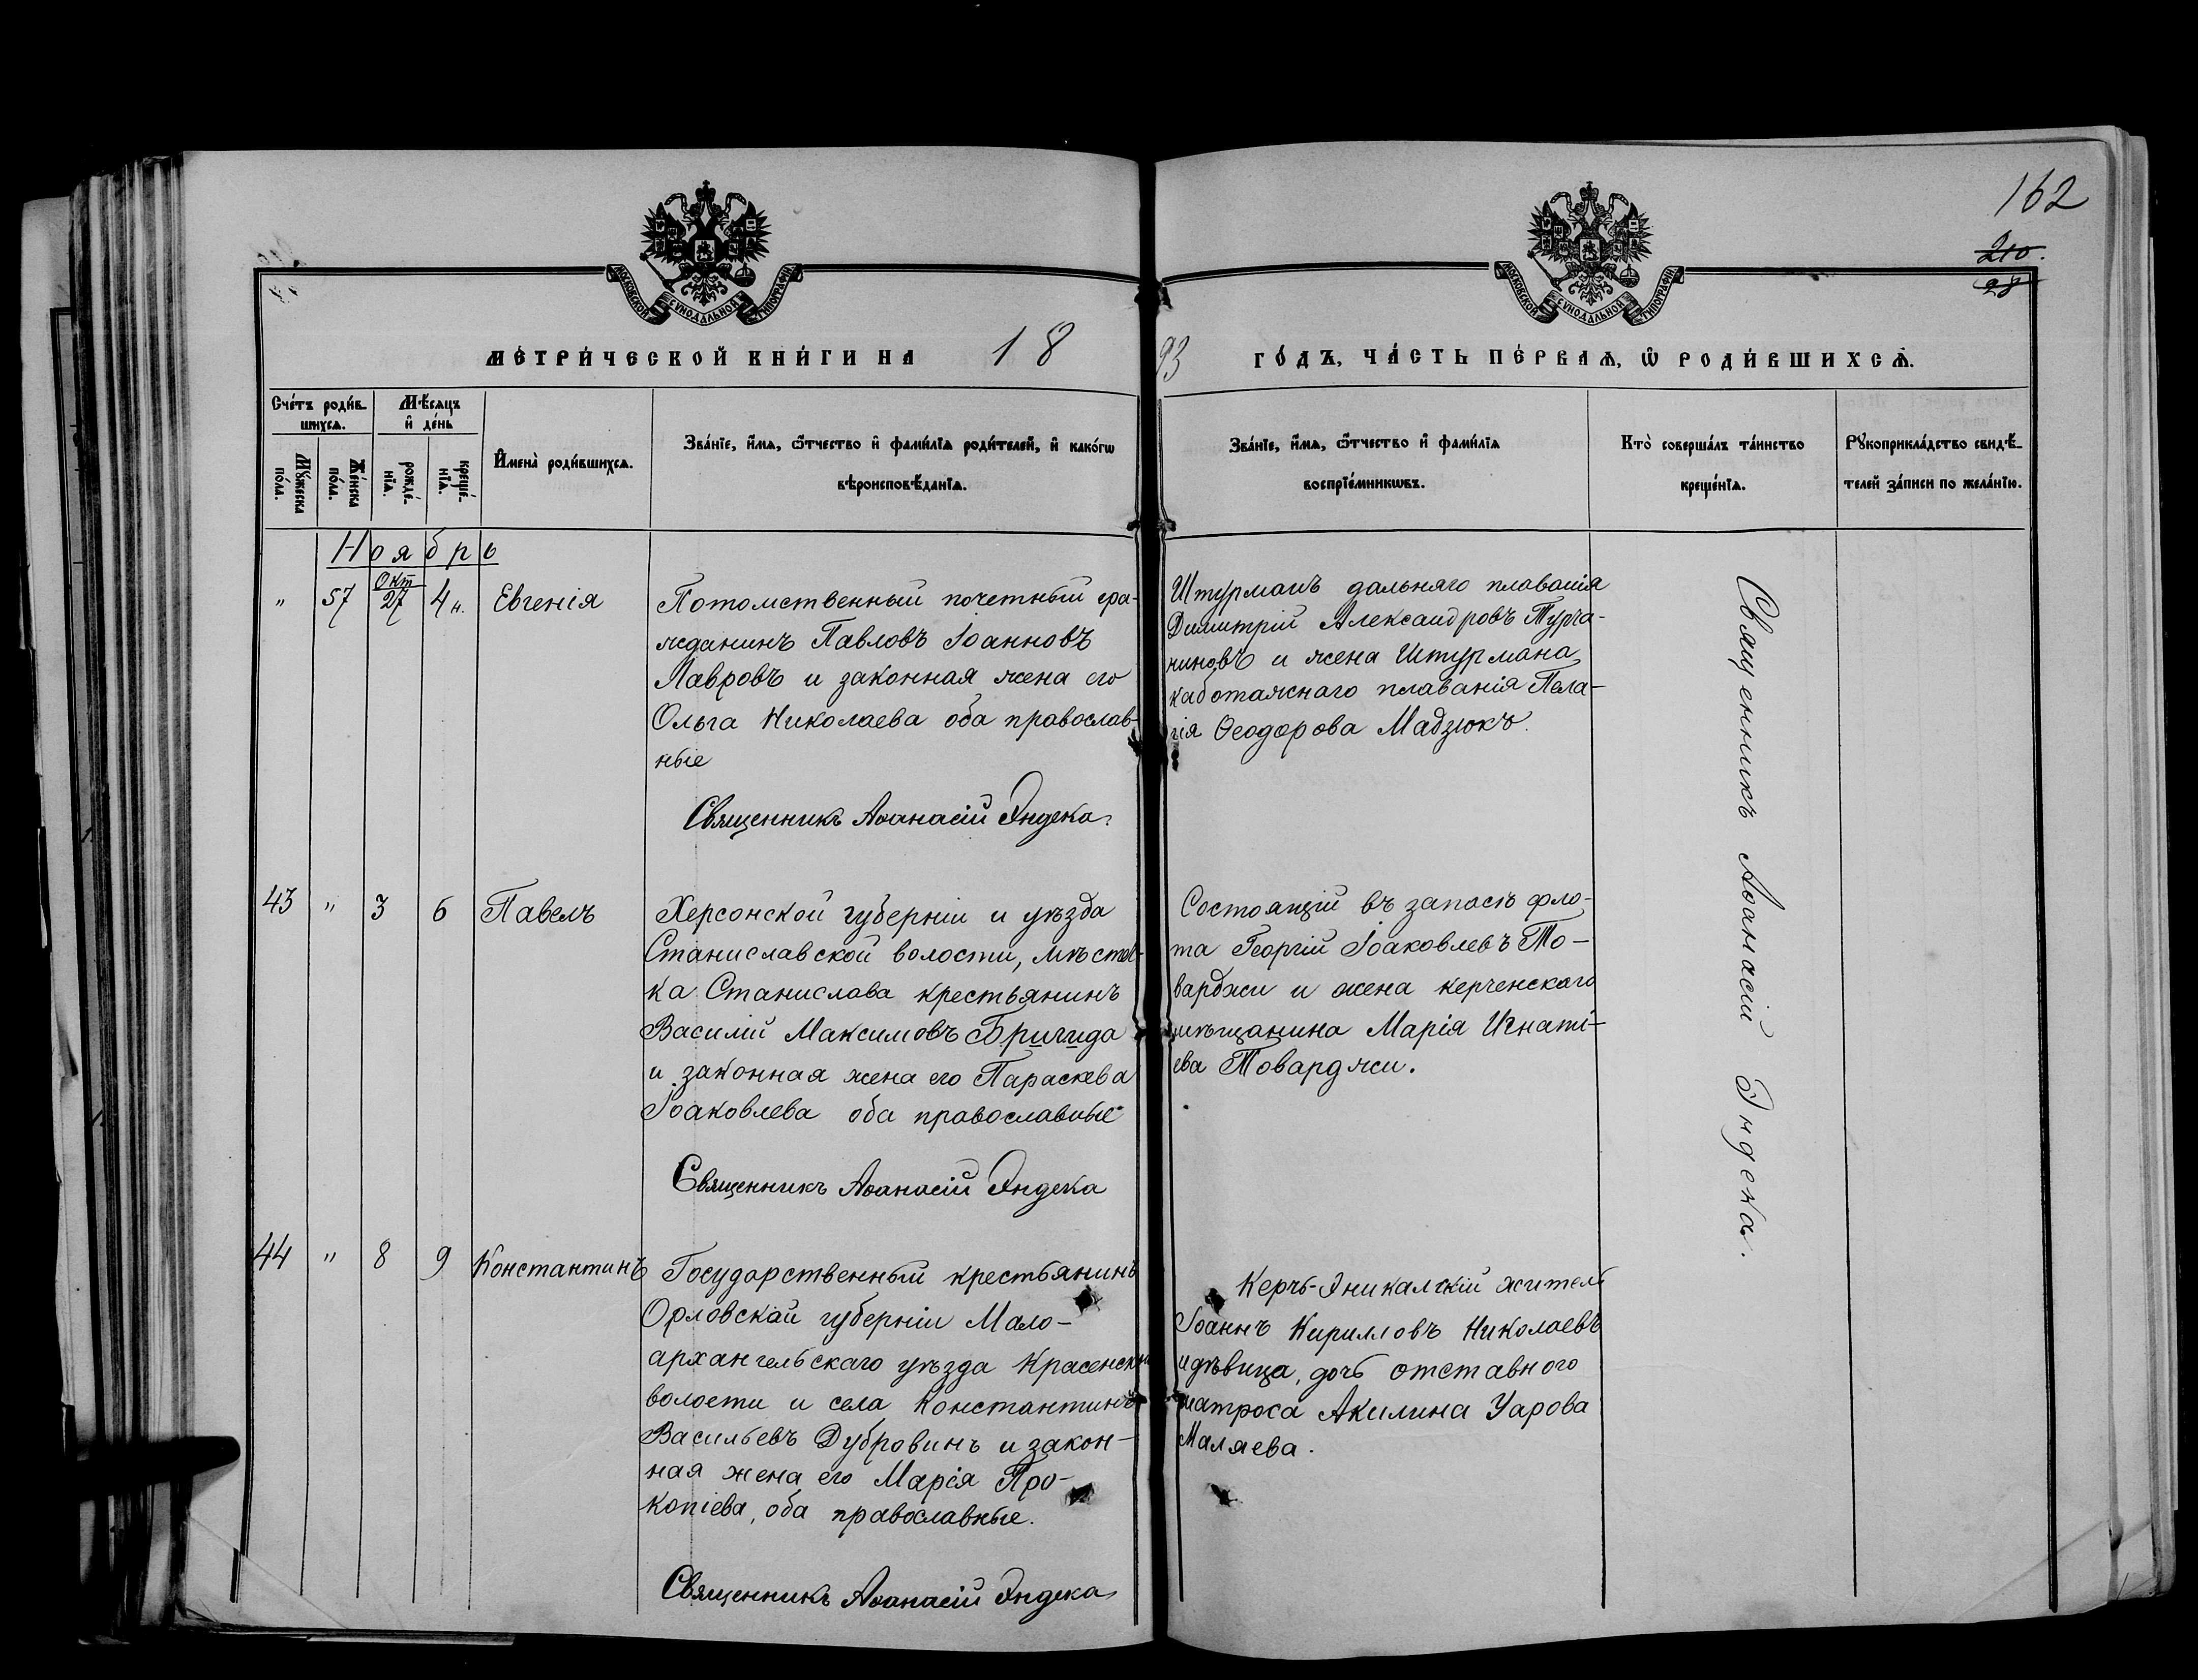 162
210.
28
МОСКОВСКОЙ СѴНОДАЛЬНОЙ ТИПОГРАФІИ
МОСКОВСКОЙ СѴНОДАЛЬНОЙ ТИПОГРАФІИ
МЕТРИ́ЧЕСКОЙ КНИ́ГИ НА 18
93 ГО́ДЪ, ЧА́СТЬ ПЕ́РВАѦ, Ѡ҆ РОДИ́ВШИХСѦ.
Сче́тъ роди́в-
шихсѧ.
Мꙋ́жеска
по́ла.
Же́нска
по́ла.
Мѣ́сѧцъ
и҆ де́нь
рожде́-
нїѧ.
креще́-
нїѧ.
И҆мена̀ роди́вшихсѧ.
Зва́нїе, и҆́мѧ, ѻ҆́тчество и҆ фами́лїѧ роди́телей, и҆ како́гѡ
вѣроисповѣ́данїѧ.
Зва́нїе, и҆́мѧ, ѻ҆́тчество и҆ фами́лїѧ
воспрїе́мникѡвъ.
Кто̀ соверша́лъ та́инство
креще́нїѧ.
Рꙋкоприкла́дство свидѣ́-
телей за́писи по жела́нїю.
Ноябрь
" 57 Окт 27 4 н. Евгенія
Потомственный почетный гра-
жданинъ Павловъ Іоанновъ
Лавровъ и законная жена его
Ольга Николаева оба православ-
ные
Священникъ Аѳанасій Эндека.
Штурманъ дальняго плаванія
Димитрій Александровъ Турча-
ниновъ и жена Штурмана
каботажнаго плаванія Пела-
гія Ѳеодорова Мадзюкъ.
Священникъ Аѳанасій Эндека.
43 " 3 6 Павелъ
Херсонской губерніи и уѣзда
Станиславской волости, мѣстеч-
ка Станислава крестьянинъ
Василій Максимовъ Бригида
и законная жена его Параскева
Іоаковлева оба православные
Священникъ Аѳанасій Эндека
Состоящій въ запасѣ фло-
та Георгій Іоаковлевъ То-
варджи и жена керченскаго
мѣщанина Марія Игнаті-
ева Товарджи.
44 " 8 9 Константинъ
Государственный крестьянинъ
Орловской губерніи Мало-
архангельскаго уѣзда Красенской
волости и села Константинъ
Васильевъ Дубровинъ и закон-
ная жена его Марія Про-
копіева, оба православные.
Священникъ Аѳанасій Эндека
Керчь-Эникалскій житель
Іоаннъ Кирилловъ Николаевъ
и дѣвица, дочь отставного
матроса Акилина Уарова
Маляева.